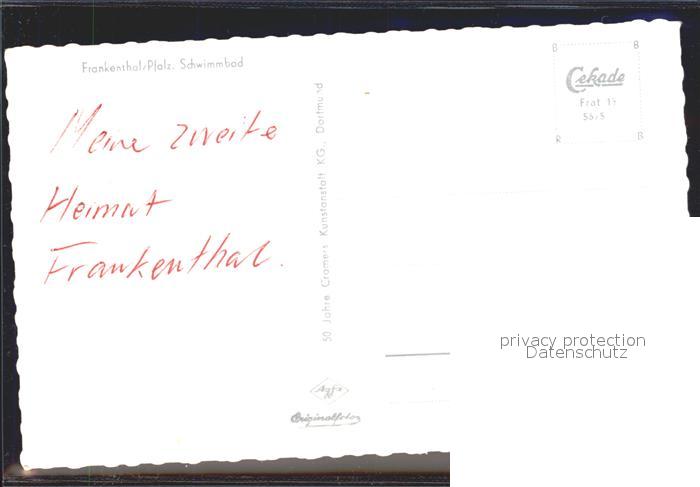 Frankenthal/Pfalz. Schwimmbad
Meine zweite
Heimat
Frankenthal.
50 Jahre Cramers Kunstanstalt KG., Dortmund
Agfa
Originalfoto
B B
Cekade
Frat 
R B
privacy protection
Datenschutz